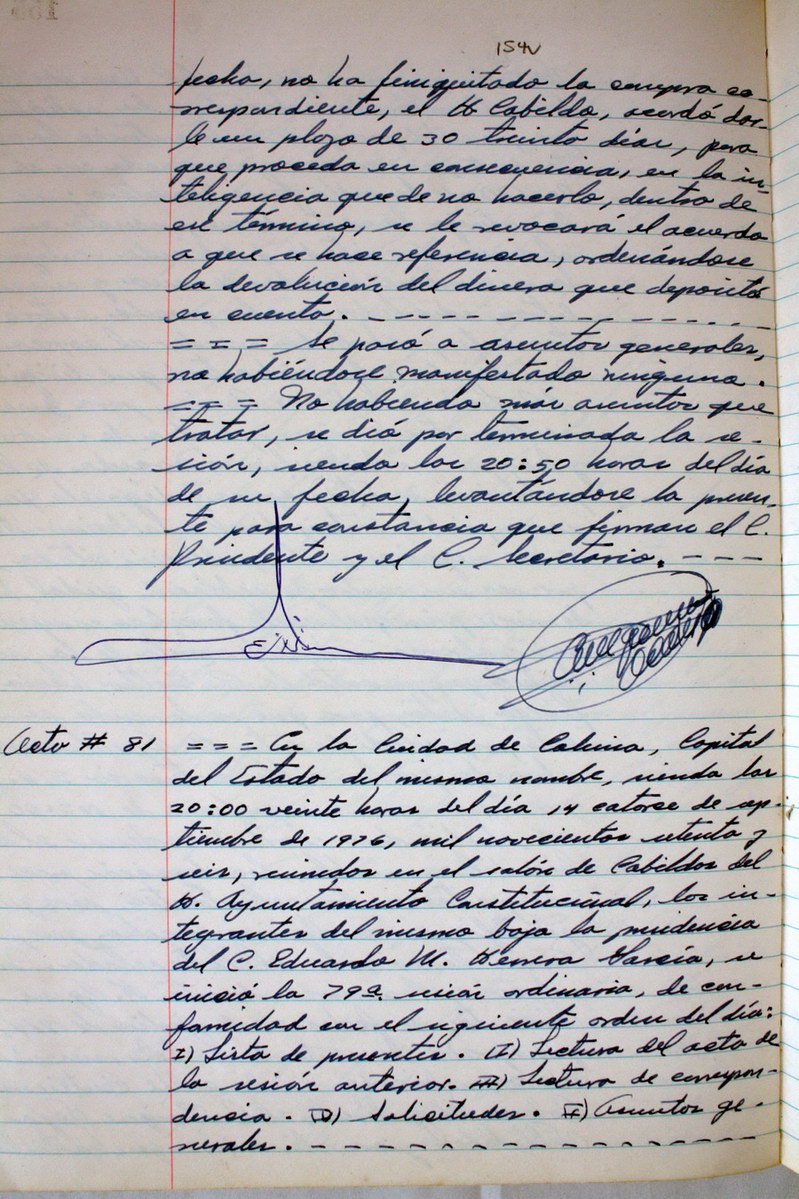 154v
fecha, no ha finiquitado la compra co-
rrespondiente, el H. Cabildo, acordó dar-
le un plazo de 30 treinta días, para
que proceda en consecuencia, en la in-
teligencia que de no hacerlo, dentro de
ese término, se le revocará el acuerdo
a que se hace referencia, ordenándose
la devolución del dinero que depositó
en cuenta. - - - - - - - - - - - - -
= = = Se pasó a asuntos generales,
no habiéndose manifestado ninguno.
= = = No habiendo más asuntos que
tratar, se dió por terminada la se-
sión, siendo las 20:50 horas del día
de su fecha, levantándose la presen-
te para constancia que firman el C.
Presidente y el C. Secretario. - - -
Acta # 81 = = = En la Ciudad de Colima, Capital
del Estado del mismo nombre, siendo las
20:00 veinte horas del día 14 catorse de sep-
tiembre de 1976, mil novecientos setenta y
seis, reunidos en el salón de Cabildos del
H. Ayuntamiento Constitucional, los in-
tegrantes del mismo bajo la presidencia
del C. Eduardo M. Herrera García, se
inició la 79a. sesión ordinaria, de con-
formidad con el siguiente orden del día:
I) Lista de presentes. II) Lectura del acta de
la sesión anterior. III) Lectura de correspon-
dencia. IV) Solicitudes. V) Asuntos ge-
nerales. - - - - - - - - - - - - - - -